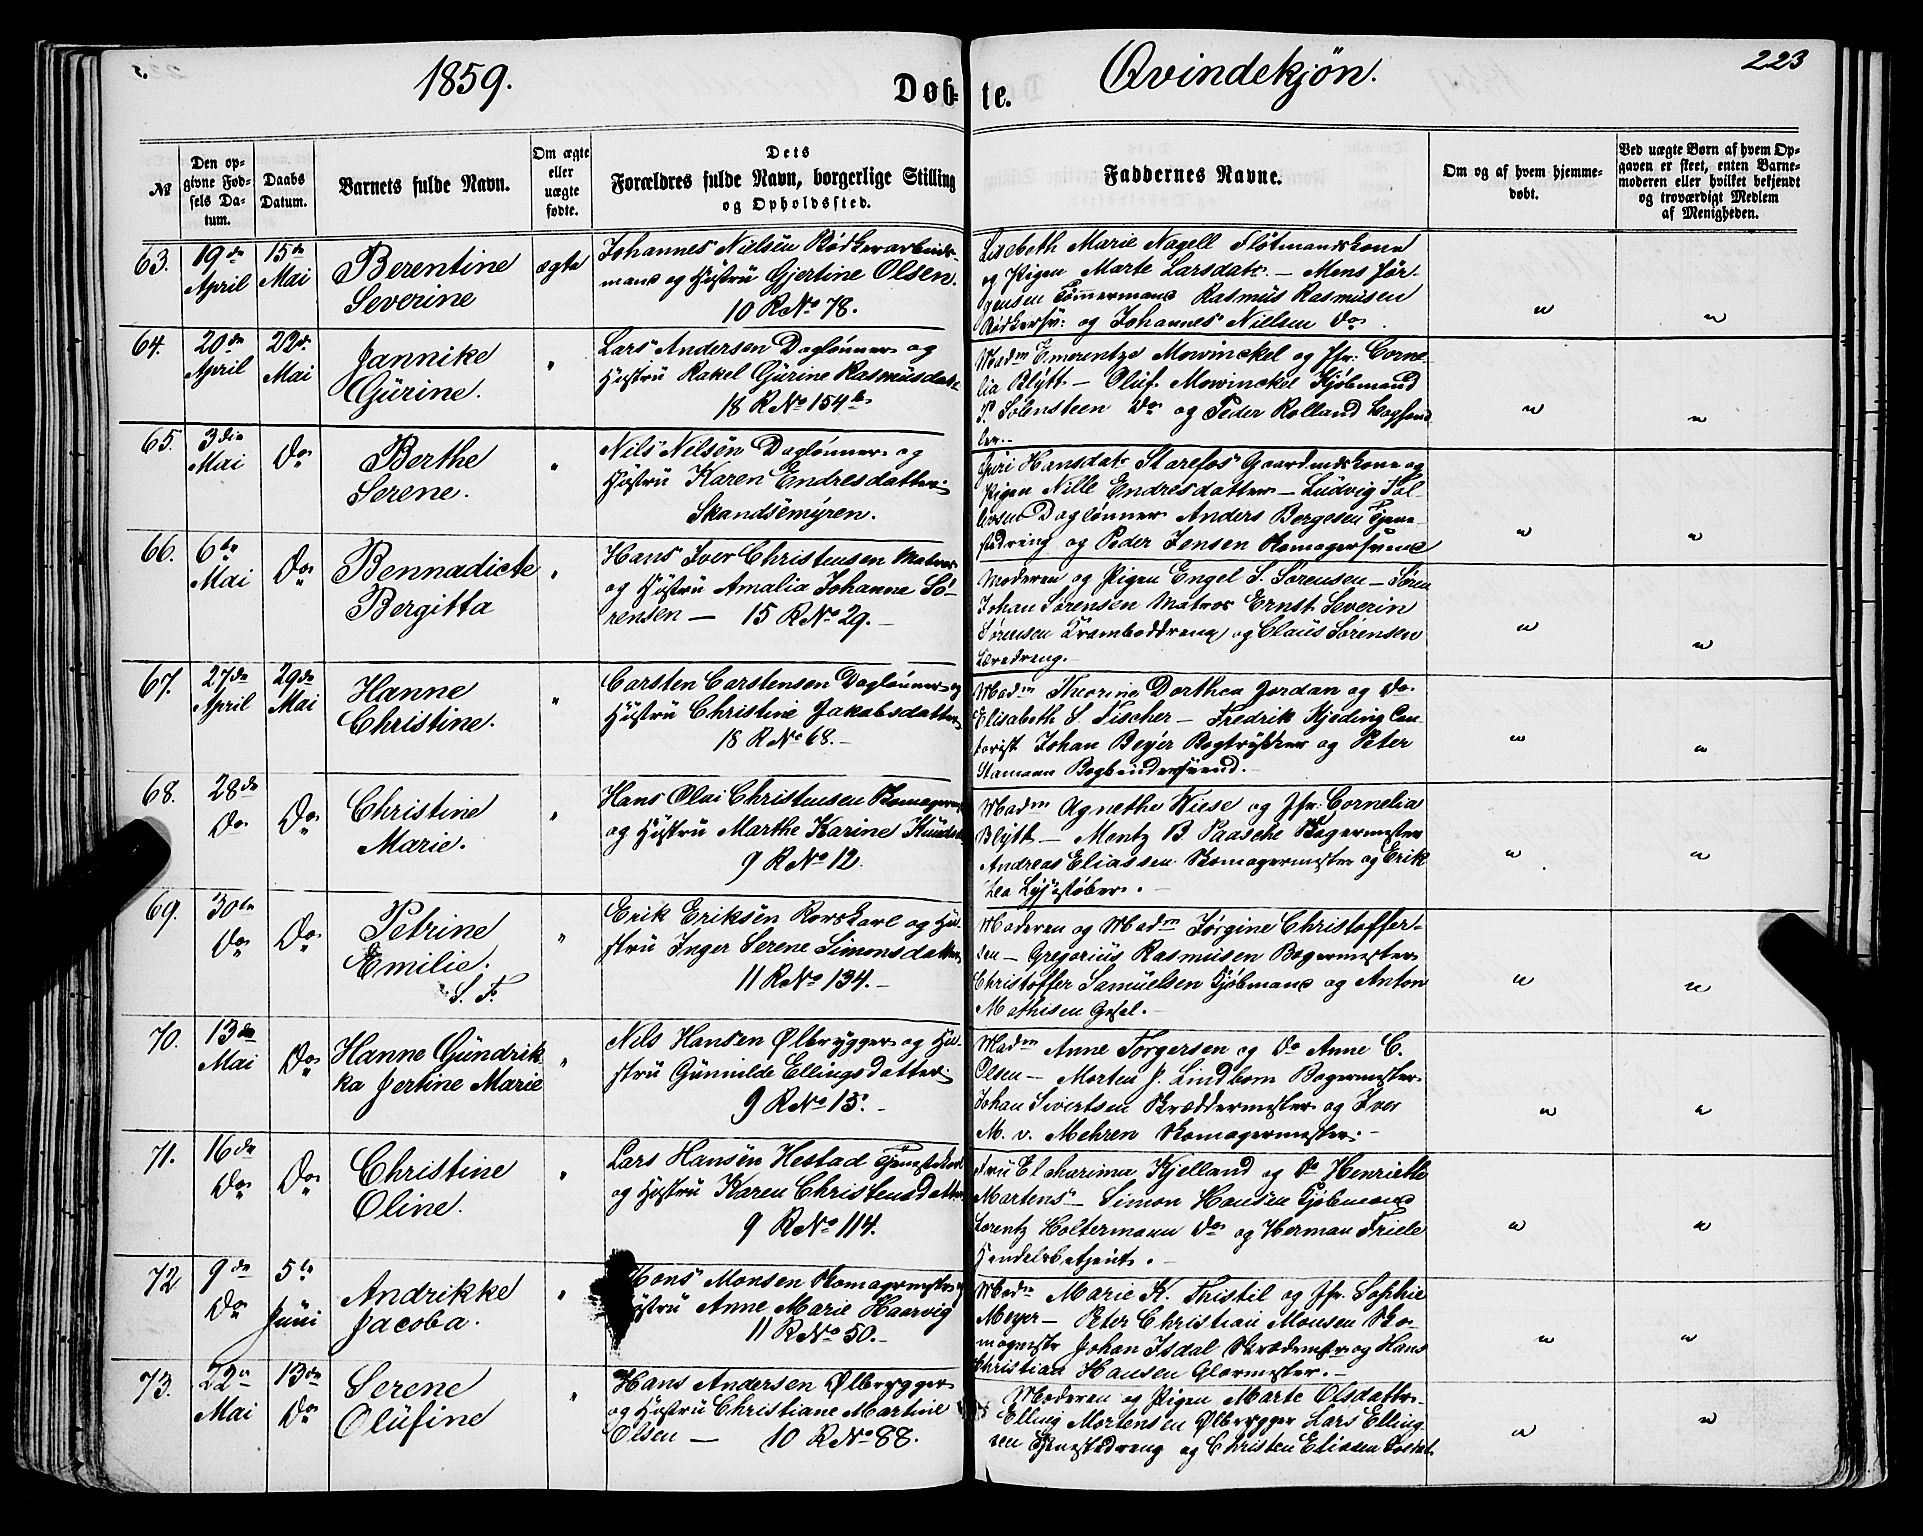 1859.
Døb-
te.
Qvindekjøn.
223
№
Den op-
givne Fød-
sels Da-
tum.
Daabs
Datum.
Barnets fulde Navn.
Om ægte
eller
uægte
fødte.
Dets
Forældres fulde Navn, borgerlige Stilling
og Opholdssted.
Faddernes Navne.
Om og af hvem hjemme-
døbt.
Ved uægte Børn af hvem Op-
gaven er skeet, enten Barne-
moderen eller hvilket bekjendt
og troværdigt Medlem
af Menigheden.
63.
19de
April
15de
Mai
Berentine
Severine
ægte
Johannes Nielsen Bødkerarbeids-
mand og Hustru Gjertine Olsen.
10 R No 78.
Lisebeth Marie Nagell Flötmandskone
og Pigen Marte Larsdatr. — Mens Jör-
gensen Tømmermand Rasmus Rasmusen
Bødkersv: og Johannes Nielsen Do
64.
20de
April
22de
Mai
Jannike
Gurine.
"
Lars Andersen Dagløner og
Hustru Rakel Gurine Rasmusdatr
18 R No 154 b.
Madm Emerentze Mowinckel og Jfr: Corne-
lia Blytt — Oluf Mowinckel Kjøbmand
P. Solensteen Do og Peder Rolland
65.
3die
Mai
Do
Berthe
Serene.
"
Nils Nilsen Dagløner og
Hustru Karen Endresdatter
Skandsemyren.
Guri Hansdatr Starefos Gaardmdskone og
Pigen Nille Endresdatter — Ludvig Tol-
lefsen Dagløner Anders Bergesen Tjene-
stedreng og Peder Jensen Skomagersvend
66.
6te
Mai
Do
Bennadicte
Bergitta
"
Hans Iver Christensen Matros
og Hustru Amalia Johanne Sö-
rensen — 15 R No 29. —
Moderen og Pigen Engel S. Sørensen — Søren
Johan Sørensen Matros Ernst Severin
Sørensen Kramboddreng og Claus Sørensen
Læredreng.
67.
27de
April
29de
Mai
Hanne
Christine.
"
Carsten Carstensen Dagløner og
Hustru Christine Jakobsdatter
18 R No 68. —
Madm Theorine Dorthea Jordan og Do
Elisabeth S. Fischer — Fredrik Kjeding Con-
torist Johan Beyer Bogtrykker og Peter
Stamann Bogbindersvend. —
68.
28de
Do
Do
Christine
Marie.
"
Hans Olai Christensen Skomagerm
og Hustru Marthe Karine Knuds
9 R No 12.
Madm Agnethe Wiese og Jfr: Cornelia
Blytt — Mentz B. Paasche Bagermester
Andreas Eliassen Skomagermester og Erik
Lea Lysestøber. —
69.
30te
Do
Do
Petrine
Emilie.
S. F.
"
Erik Eriksen Rorskarl og Hu-
stru Inger Serene Simonsdatter
11 R No 134. —
Moderen og Madm Jørgine Christoffer-
sen — Gregorius Rasmusen Bagermester
Christoffer Samuelsen Kjøbmand og Anton
Mathisen Gesel. —
70.
13de
Mai
Do
Hanne Gundrik
ka Jertine Marie
"
Nils Hansen Ølbrygger og Hu-
stru Gunnilde Ellingsdatter
9 R No 13. —
Madm Anne Torgersen og Do Anne C.
Olsen — Morten J. Lindbom Bagermester
Johan Sivertsen Skræddermester og Iver
M. v. Mehren Skomagermester. —
71.
16de
Do
Do
Christine
Oline.
"
Lars Hansen Hestad Tjenestekarl
og Hustru Karen Christensdatter
9 R No 114.
Fru Elcharima Kjelland og Do Henriette
Martens — Simon Hansen Kjøbmand
Lorentz Holtermann Do og Herman Friele
Handelsbetjent. —
72
9de
Do
5te
Juni
Andrikke
Jacoba.
"
Mons Monsen Skomagermester
Hustru Anne Marie Haarvig
11 R No 50. —
Madm Marie K. Thistil og Jfr. Sophie
Meyer — Peter Christian Monsen Sko-
magermestr Johan Isdal Skrædermstr og Hans
Christian Hansen Glarmester. —
73.
22de
Mai
13de
Do
Serene
Olufine
"
Hans Andersen Ølbrygger
og Hustru Christiane Martine
Olsen — 10 R No 88.
Moderen og Pigen Marte Olsdattr
Elling Mortensen Ølbrygger Lars Elling-
sen Tjenestedreng og Christen Eliesen